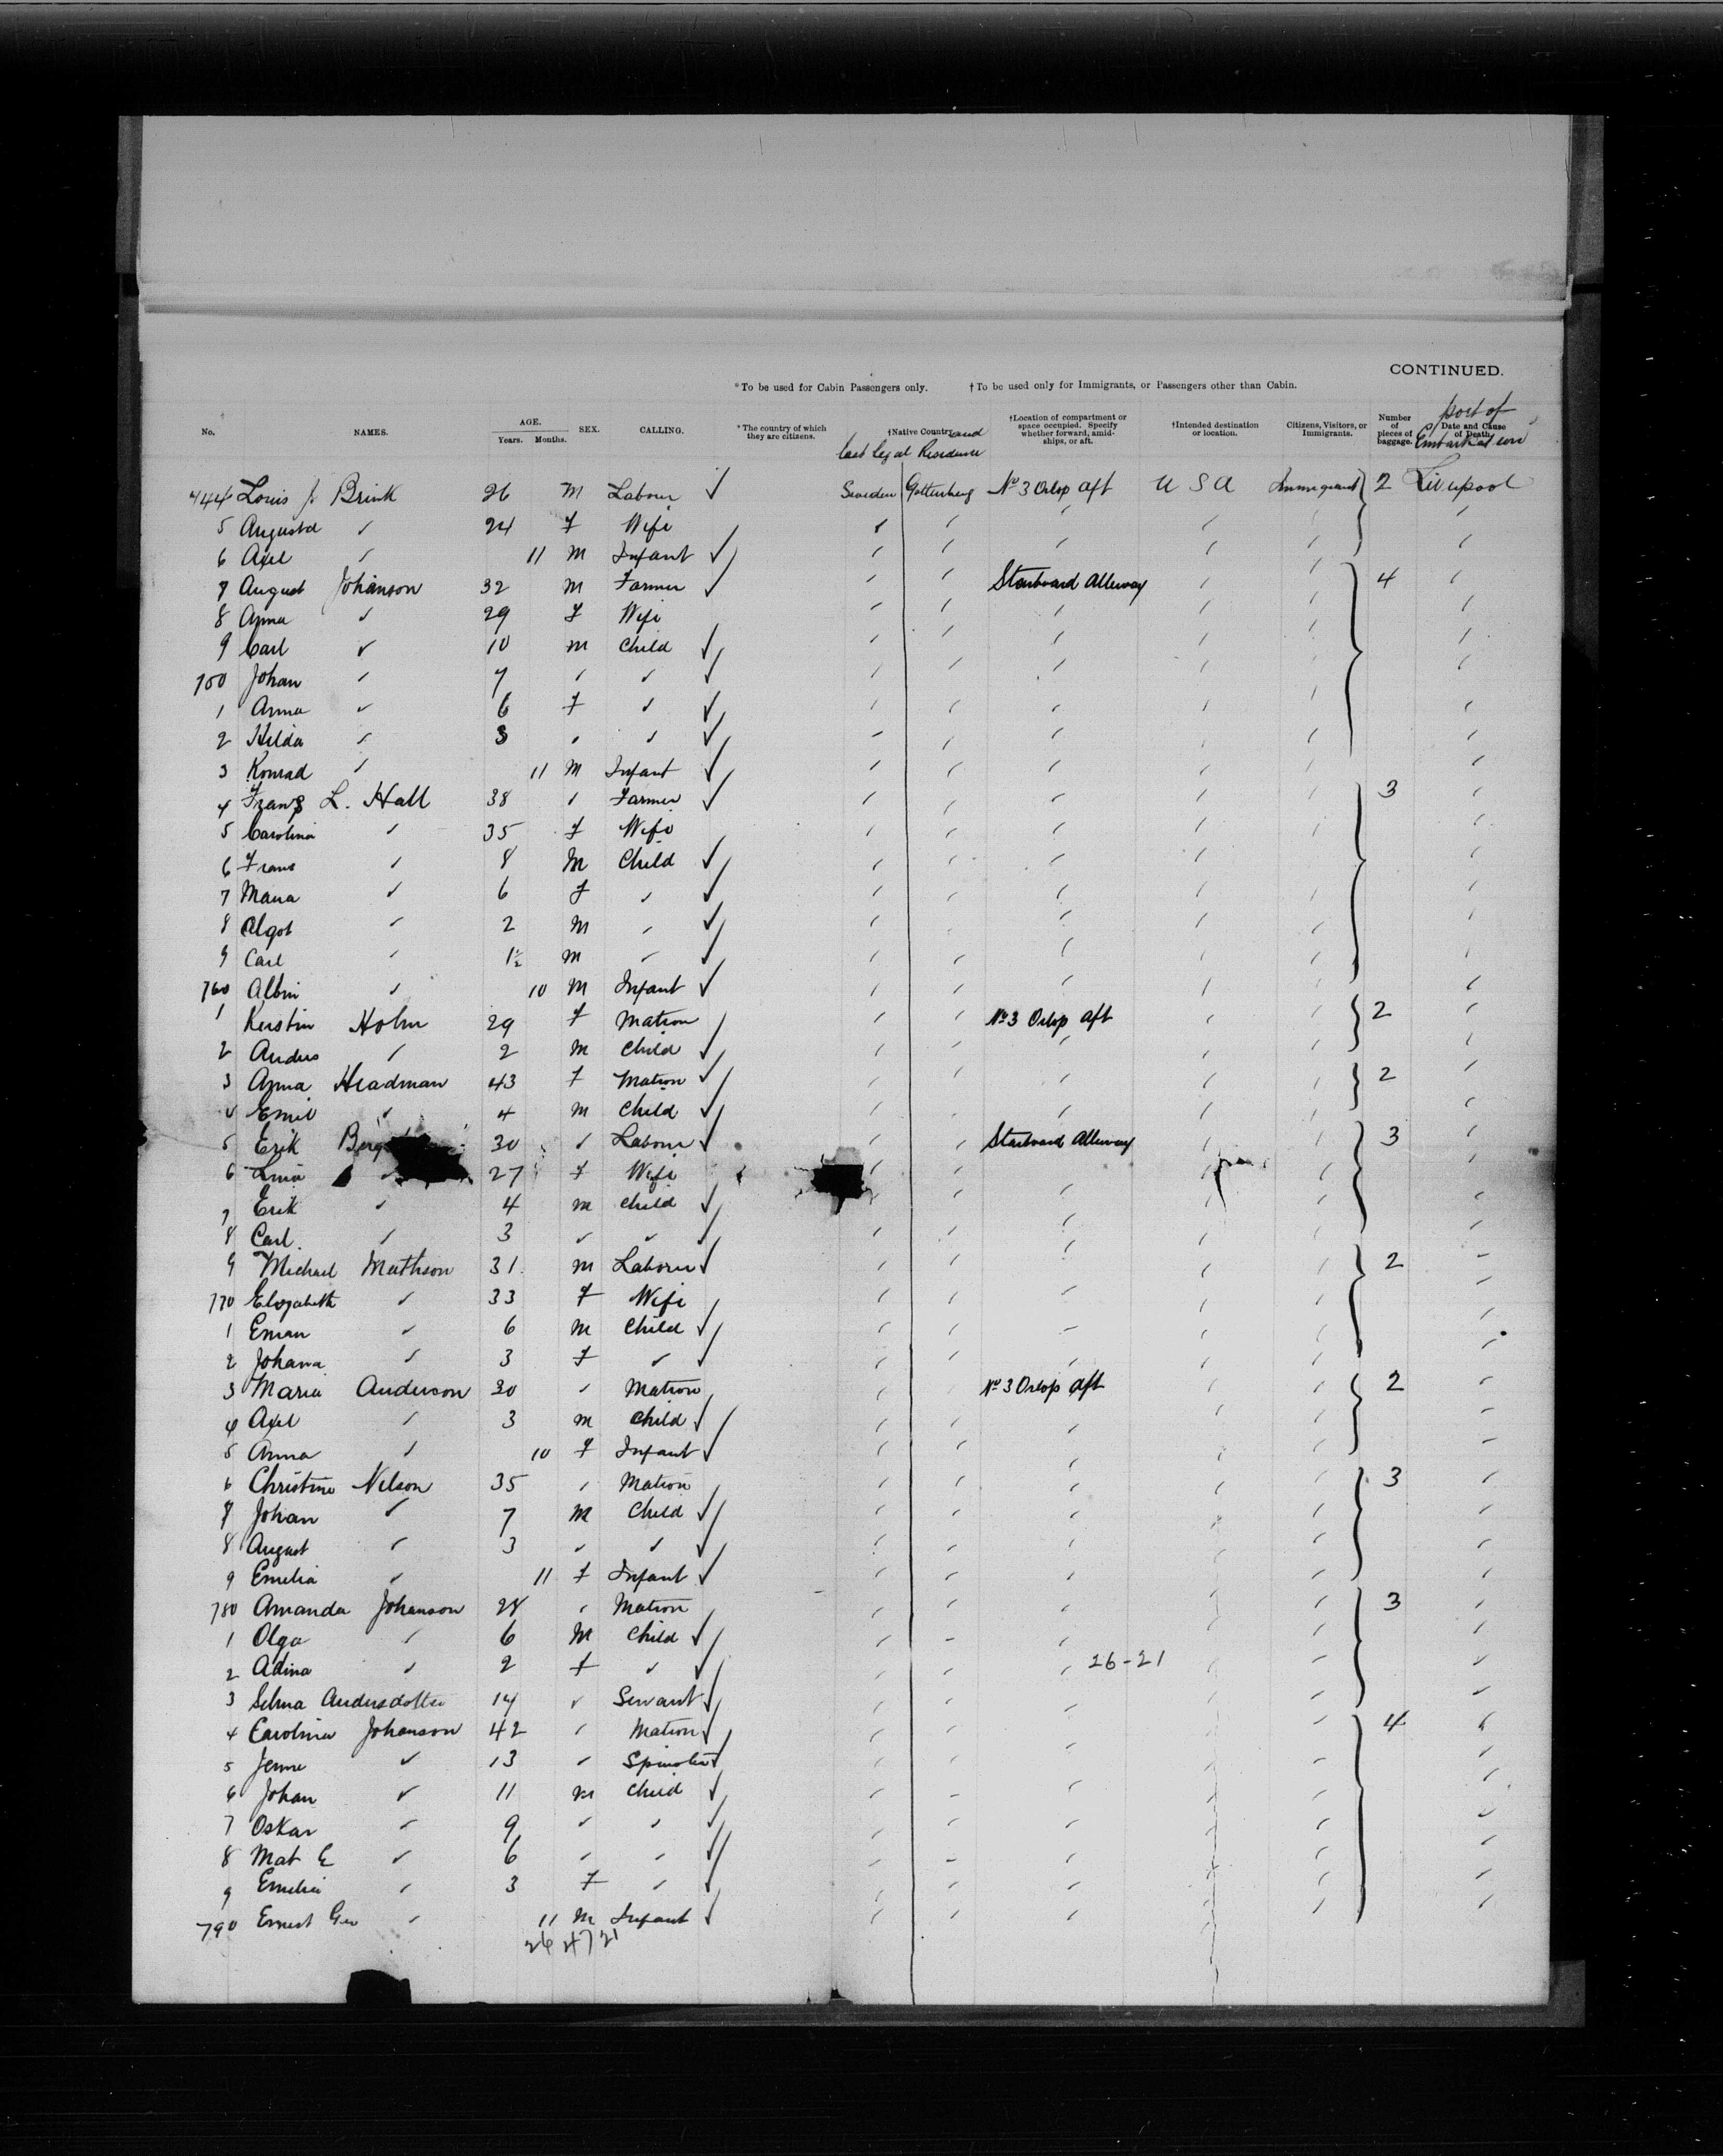 CONTINUED.
*To be used for Cabin Passengers only. †To be used only for Immigrants, or Passengers other than Cabin.
No. NAMES. AGE. Years. Months. SEX. CALLING. *The country of which they are citizens. †Native Country and last legal Residence †Location of compartment or space occupied. Specify whether forward, amidships, or aft. †Intended destination or location. Citizens, Visitors, or Immigrants. Number of pieces of baggage. Date and Cause of Death. port of Embarkation
744 Louis J. Brink 26 M Labourer ✓ Sweden Gottenberg No 3 Orlop aft U S A Immigrant 2 Liverpool
5 Augusta ✓ 24 F Wife
6 Axel ✓ 11 M Infant ✓
7 August Johanson 32 M Farmer ✓ Starboard Alleway 4
8 Anna ✓ 29 F Wife
9 Carl ✓ 10 M Child ✓
750 Johan ✓ 7 ✓ ✓ ✓
1 Anna ✓ 6 F ✓ ✓
2 Hilda ✓ 3 ✓ ✓ ✓
3 Konrad ✓ 11 M Infant ✓
4 Frans L. Hall 38 ✓ Farmer ✓ 3
5 Carolina ✓ 35 F Wife
6 Frans ✓ 8 M Child ✓
7 Maria ✓ 6 F ✓ ✓
8 Algot ✓ 2 M ✓ ✓
9 Carl ✓ 1½ M ✓ ✓
760 Albin ✓ 10 M Infant ✓
1 Kerstin Holm 29 F Matron No 3 Orlop aft 2
2 Anders ✓ 2 M Child ✓
3 Anna Headman 43 F Matron ✓ 2
4 Emil ✓ 4 M Child ✓
5 Erik 30 ✓ Labourer ✓ Starboard Alleway 3
6 27 F Wife
7 Erik ✓ 4 M Child ✓
8 Carl ✓ 3 ✓ ✓ ✓
9 Michael Mathson 31 M Labourer ✓ 2
770 Elizabeth ✓ 33 F Wife
1 Eman ✓ 6 M Child ✓
2 Johana ✓ 3 F ✓ ✓
3 Maria Anderson 30 ✓ Matron No 3 Orlop aft 2
4 Axel ✓ 3 M Child ✓
5 Anna ✓ 10 F Infant ✓
6 Christine Nelson 35 ✓ Matron 3
7 Johan ✓ 7 M Child ✓
8 August ✓ 3 ✓ ✓ ✓
9 Emelia ✓ 11 F Infant ✓
780 Amanda Johanson 28 ✓ Matron 3
1 Olga ✓ 6 M Child ✓
2 Adina ✓ 2 F ✓ ✓ 26-21
3 Selma Andersdotter 14 ✓ Servant ✓
4 Carolina Johanson 42 ✓ Matron ✓ 4
5 Jenne ✓ 13 ✓ Spinster ✓
6 Johan ✓ 11 M Child ✓
7 Oskar ✓ 9 ✓ ✓ ✓
8 Mat E ✓ 6 ✓ ✓ ✓
9 Emelia ✓ 3 F ✓ ✓
790 Ernest Geo ✓ 11 M Infant ✓
26 47 21